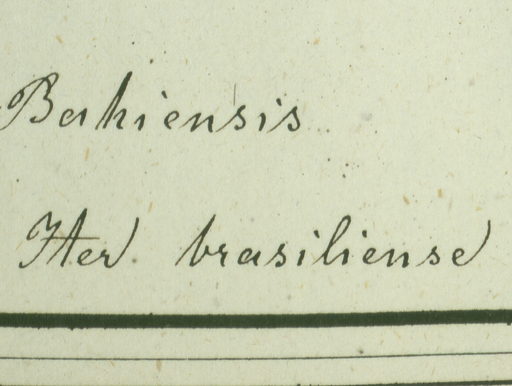 Bahiensis
Iter brasiliense